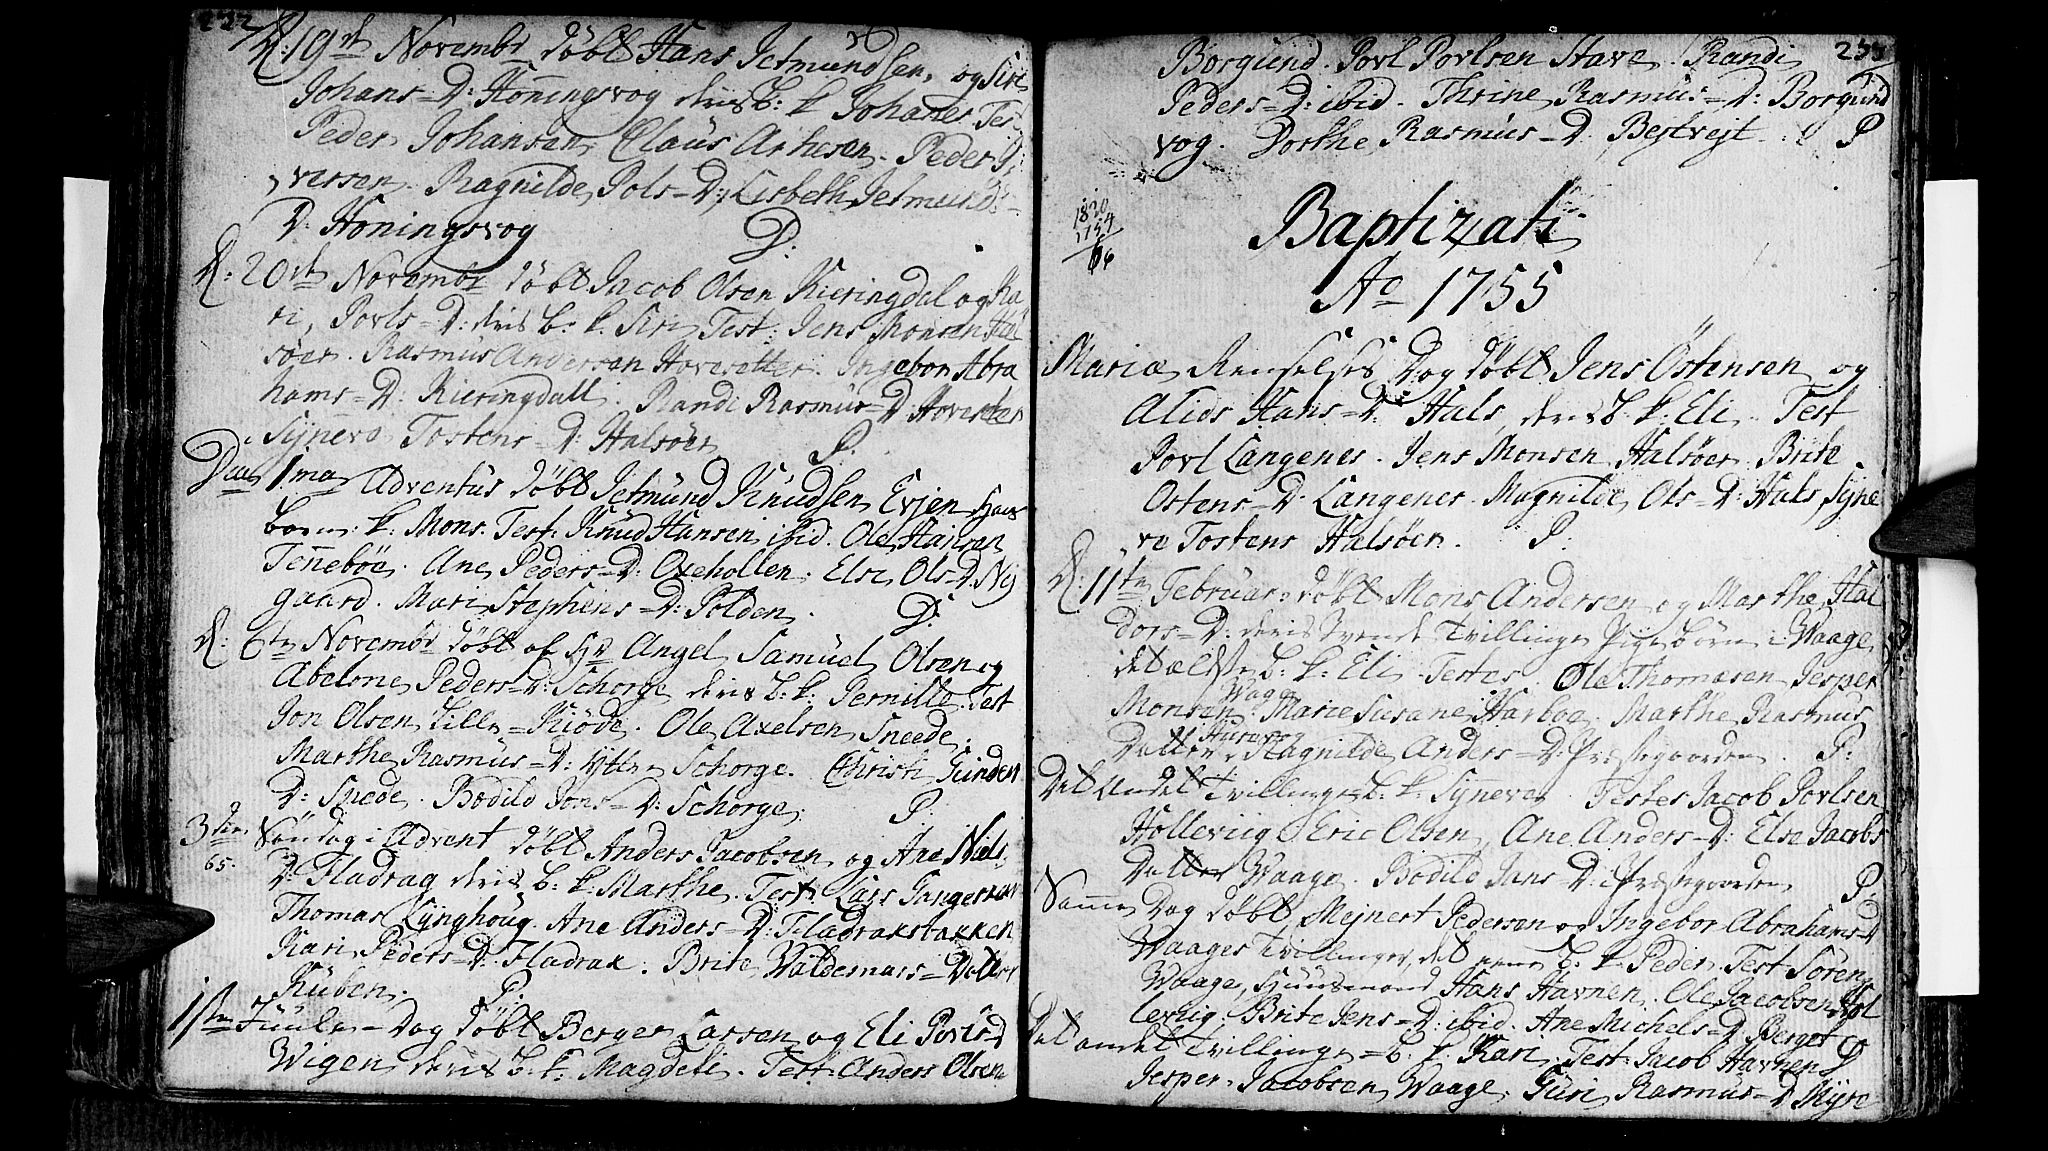 232
D: 19de Novembr døbt Hans Jetmundsen, og Siri
Johans=D: Honingsvog deris B: k: Johanes Test
Peder Johansen Claus Arnesen. Peder
versen. Ragnilde Pols=D: Lisbeth Jetmunds=
D: Honingsvog D:
D: 20de Novembr døbt Jacob Olsen Kieringdal og Ka
ri, Povls=D: deris B: k: Siri Test: Jens Monsen Hal
søer. Rasmus Andersen Hovesetter. Ingebor Abra
hams=D: Kieringdall. Randi Rasmus=D: Hovesetter
Synevo Tostens=D: Halsøer P:
Dca 1ma Adventus døbt Jetmund Knudsen Evjen
born: k: Mons. Test: Knud Hansen ibid. Ole Hansen
Tennebøe. Ane Peders=D: Oxehollen. Else Ols=D: Ny
gaard. Mari Stephens=D: Polden. D:
D: 6te Novembr døbt af Hr Angel Samuel Olsen og
Abelone Peders=D: Schorge deris B: k: Pernille. Test
Jon Olsen Lille=Kiøde. Ole Axelsen Sneede.
Marthe Rasmus=D: Ytter Schorge. Christi Gunder
D: Snede. Bodild Jons=D: Schorge. P:
3die Søndag i Advent døbt Anders Jacobsen og Ane Niels
65. D: Fladrag deris B: k: Marthe. Test: Lars
Thomas Lynghoug. Ane Anders=D: Fladraksbakken
Kari Peders=D: Fladrak. Brite Valdemars=Datter
Kuben. P:
1ste Juule=Dag døbt Berger Larsen og Eli Povls=D
Wigen deris B: k: Magdeli. Test: Anders Olsen
233
Borgund. Povl Povlsen Stave. Randi
Peders=D: ibid. Thrine Rasmus=D: Borgund
vog. Dorthe Rasmus=D: Bestvejt. P
1820
1754
66
Baptizati
Ao 1755
Mariæ Renselses Dag døbt Jens Østensen og
Alids Hans=D: Hals, deris B: k: Eli. Test
Povl Langenes. Jens Monsen Halsøer. Brite
Ostens=D: Langenes. Magnilde Ols=D: Hals, Syne
ve Tostens Halsøer. P:
D: 11te Februar: døbt Mons Andersen og Marthe Hal
dors=D: deris tvende Tvillinge Pigebørn i Waage
det ældste B: k: Eli. Testes Ole Thomasen Jesper
Monsen Waage. Marie Susane Harboe. Marthe Rasmus
Datter Husevog Ragnilde Anders=D: Præstegaarden. P:
Det Andet Tvilling B: k: Synever. Testes Jacob Povlsen
Holleviig Eric Olsen, Ane Anders=D: Else Jacobs
Datter Waage. Bodild Jans=D: Præstegaarden P
Samme Dag døbt Mejnert Pedersen og Ingebor Abrahams=D
Waages Tvillinger, det eene B: k: Peder. Test Søren
Waage, Huusmand Hans Havnen. Ole Jacobsen Hol
levig, Brite Jens=D: ibid. Ane Michels=D Berget
Det andet Tvilling=B: k: Kari. Test: Jacob Havnen P
Jesper Jacobsen Waage. Guri Rasmus=D Myre